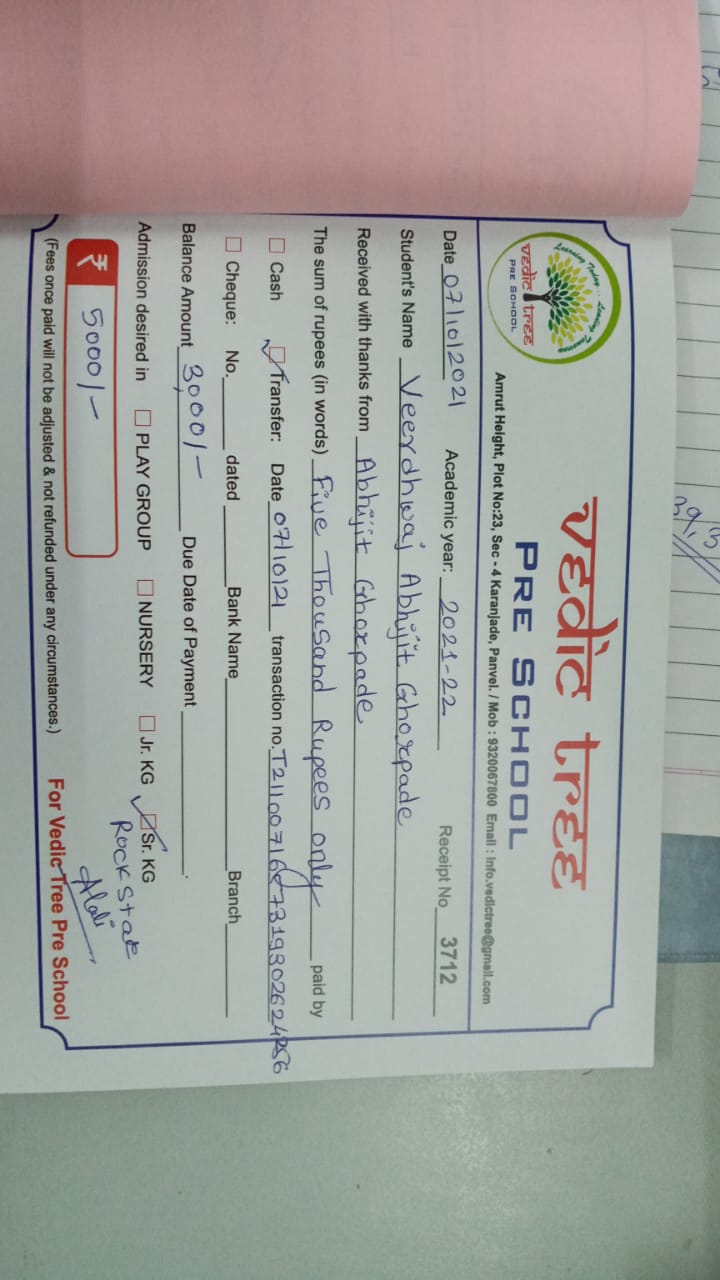 Learning Today... Leading Tomorrow
vedic tree
PRE SCHOOL
vedic tree
PRE SCHOOL
Amrut Height, Plot No:23, Sec - 4 Karanjade, Panvel. / Mob : 9320067800 Email : Info.vedictree@gmail.com
Date 07/10/2021 Academic year: 2021-22 Receipt No 3712
Student's Name Veerdhwaj Abhijit Ghorpade
Received with thanks from Abhijit Ghorpade
The sum of rupees (in words) Five Thousand Rupees only paid by
Cash Transfer: Date 07/10/21 transaction no.
Cheque: No. dated Bank Name Branch
Balance Amount 30,000/- Due Date of Payment
Admission desired in PLAY GROUP NURSERY Jr. KG Sr. KG
Rockstar
₹ 5000/-
(Fees once paid will not be adjusted & not refunded under any circumstances.) For Vedic Tree Pre School